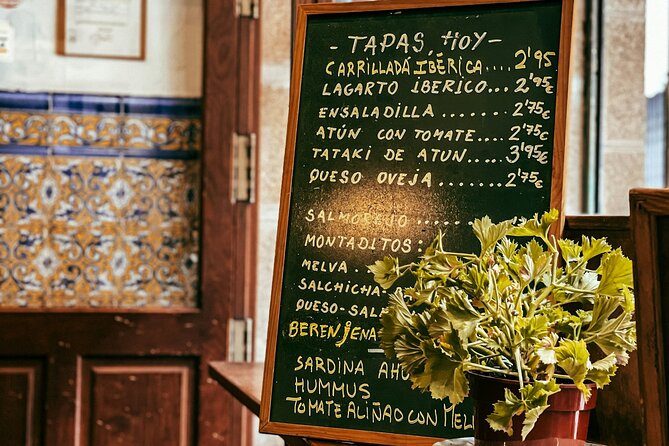 - TAPAS, HOY -
CARRILLADA IBÉRICA.... 2'95
LAGARTO IBERICO... 2'95€
ENSALADILLA ........ 2'75€
ATÚN CON TOMATE.... 2'75€
TATAKI DE ATUN..... 3'95€
QUESO OVEJA ....... 2'75€
SALMOREJO .....
MONTADITOS:
MELVA ..
SALCHICHA-
QUESO-SAL
BERENJENA
SARDINA AHU
HUMMUS
TOMATE ALIÑAO CON MEL